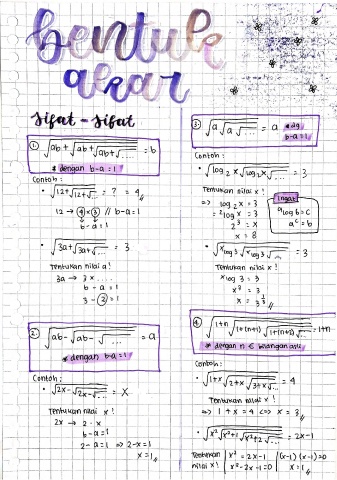 bentuk
akar
Sifat - Sifat
1. √ab + √ab + √ab + √... = b
* dengan b-a = 1
Contoh :
• √12 + √12 + √... = ? = 4
12 → 4 x 3 // b-a = 1
b - a = 1
• √3a + √3a + √... = 3
Tentukan nilai a !
3a → 3 x ....
b - a = 1
3 - 2 = 1
2. √ab - √ab - √... = a
* dengan b-a = 1
Contoh :
• √2x - √2x - √... = x
Tentukan nilai x !
2x → 2 . x
b - a = 1
2 - a = 1 ⇒ 2 - x = 1
x = 1
3. √a √a √... = a
b-a = 1
Contoh :
• √log 2 x √log 2 x √... = 3
Tentukan nilai x !
⇒ log 2 x = 3
= ²log x = 3
2³ = x
x = 8
Ingat
ᵃlog b = c
aᶜ = b
• √x log 3 √x log 3 √... = 3
Tentukan nilai x !
ˣlog 3 = 3
x³ = 3
x =
4. √1+n √1+(n+1) √1+(n+2) √... = 1+n
* dengan n ∈ bilangan asli
Contoh :
• √1+x √2+x √3+x √... = 4
Tentukan nilai x !
⇒ 1 + x = 4 <=> x = 3
• √x² √x²+1 √x²+2 √... = 2x-1
Tentukan nilai x !
x² = 2x - 1
x² - 2x - 1 = 0
(x-1) (x-1) = 0
x = 1